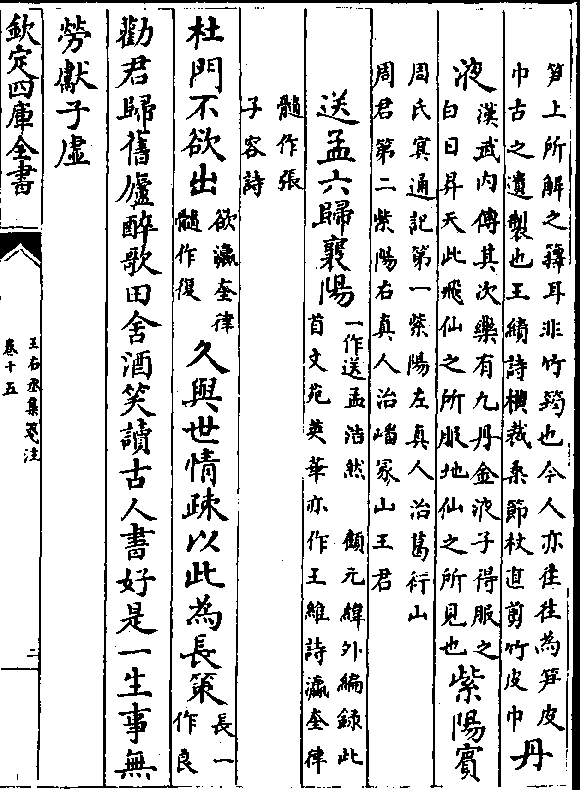 笋上所解之籜耳非竹籜也今人亦往往為笋皮
巾古之遺製也王績詩横裁桑節杖直剪竹皮巾
丹
液
漢武内傳其次藥有九丹金液子得服之
白日昇天此飛仙之所服地仙之所見也
紫陽賓
周氏冥通記第一紫陽左真人治葛衍山
周君第二紫陽右真人治嶓冢山王君
送孟六歸襄陽
一作送孟浩然 顧元緯外編録此
首文苑英華亦作王維詩瀛奎律
髓作張
子容詩
杜門不欲出
欲瀛奎律
髓作復
久與世情疎以此為長策
長一
作良
勸君歸舊廬醉歌田舍酒笑讀古人書好是一生事無
勞獻子虚
欽定四庫全書
王右丞集箋注
卷十五
二